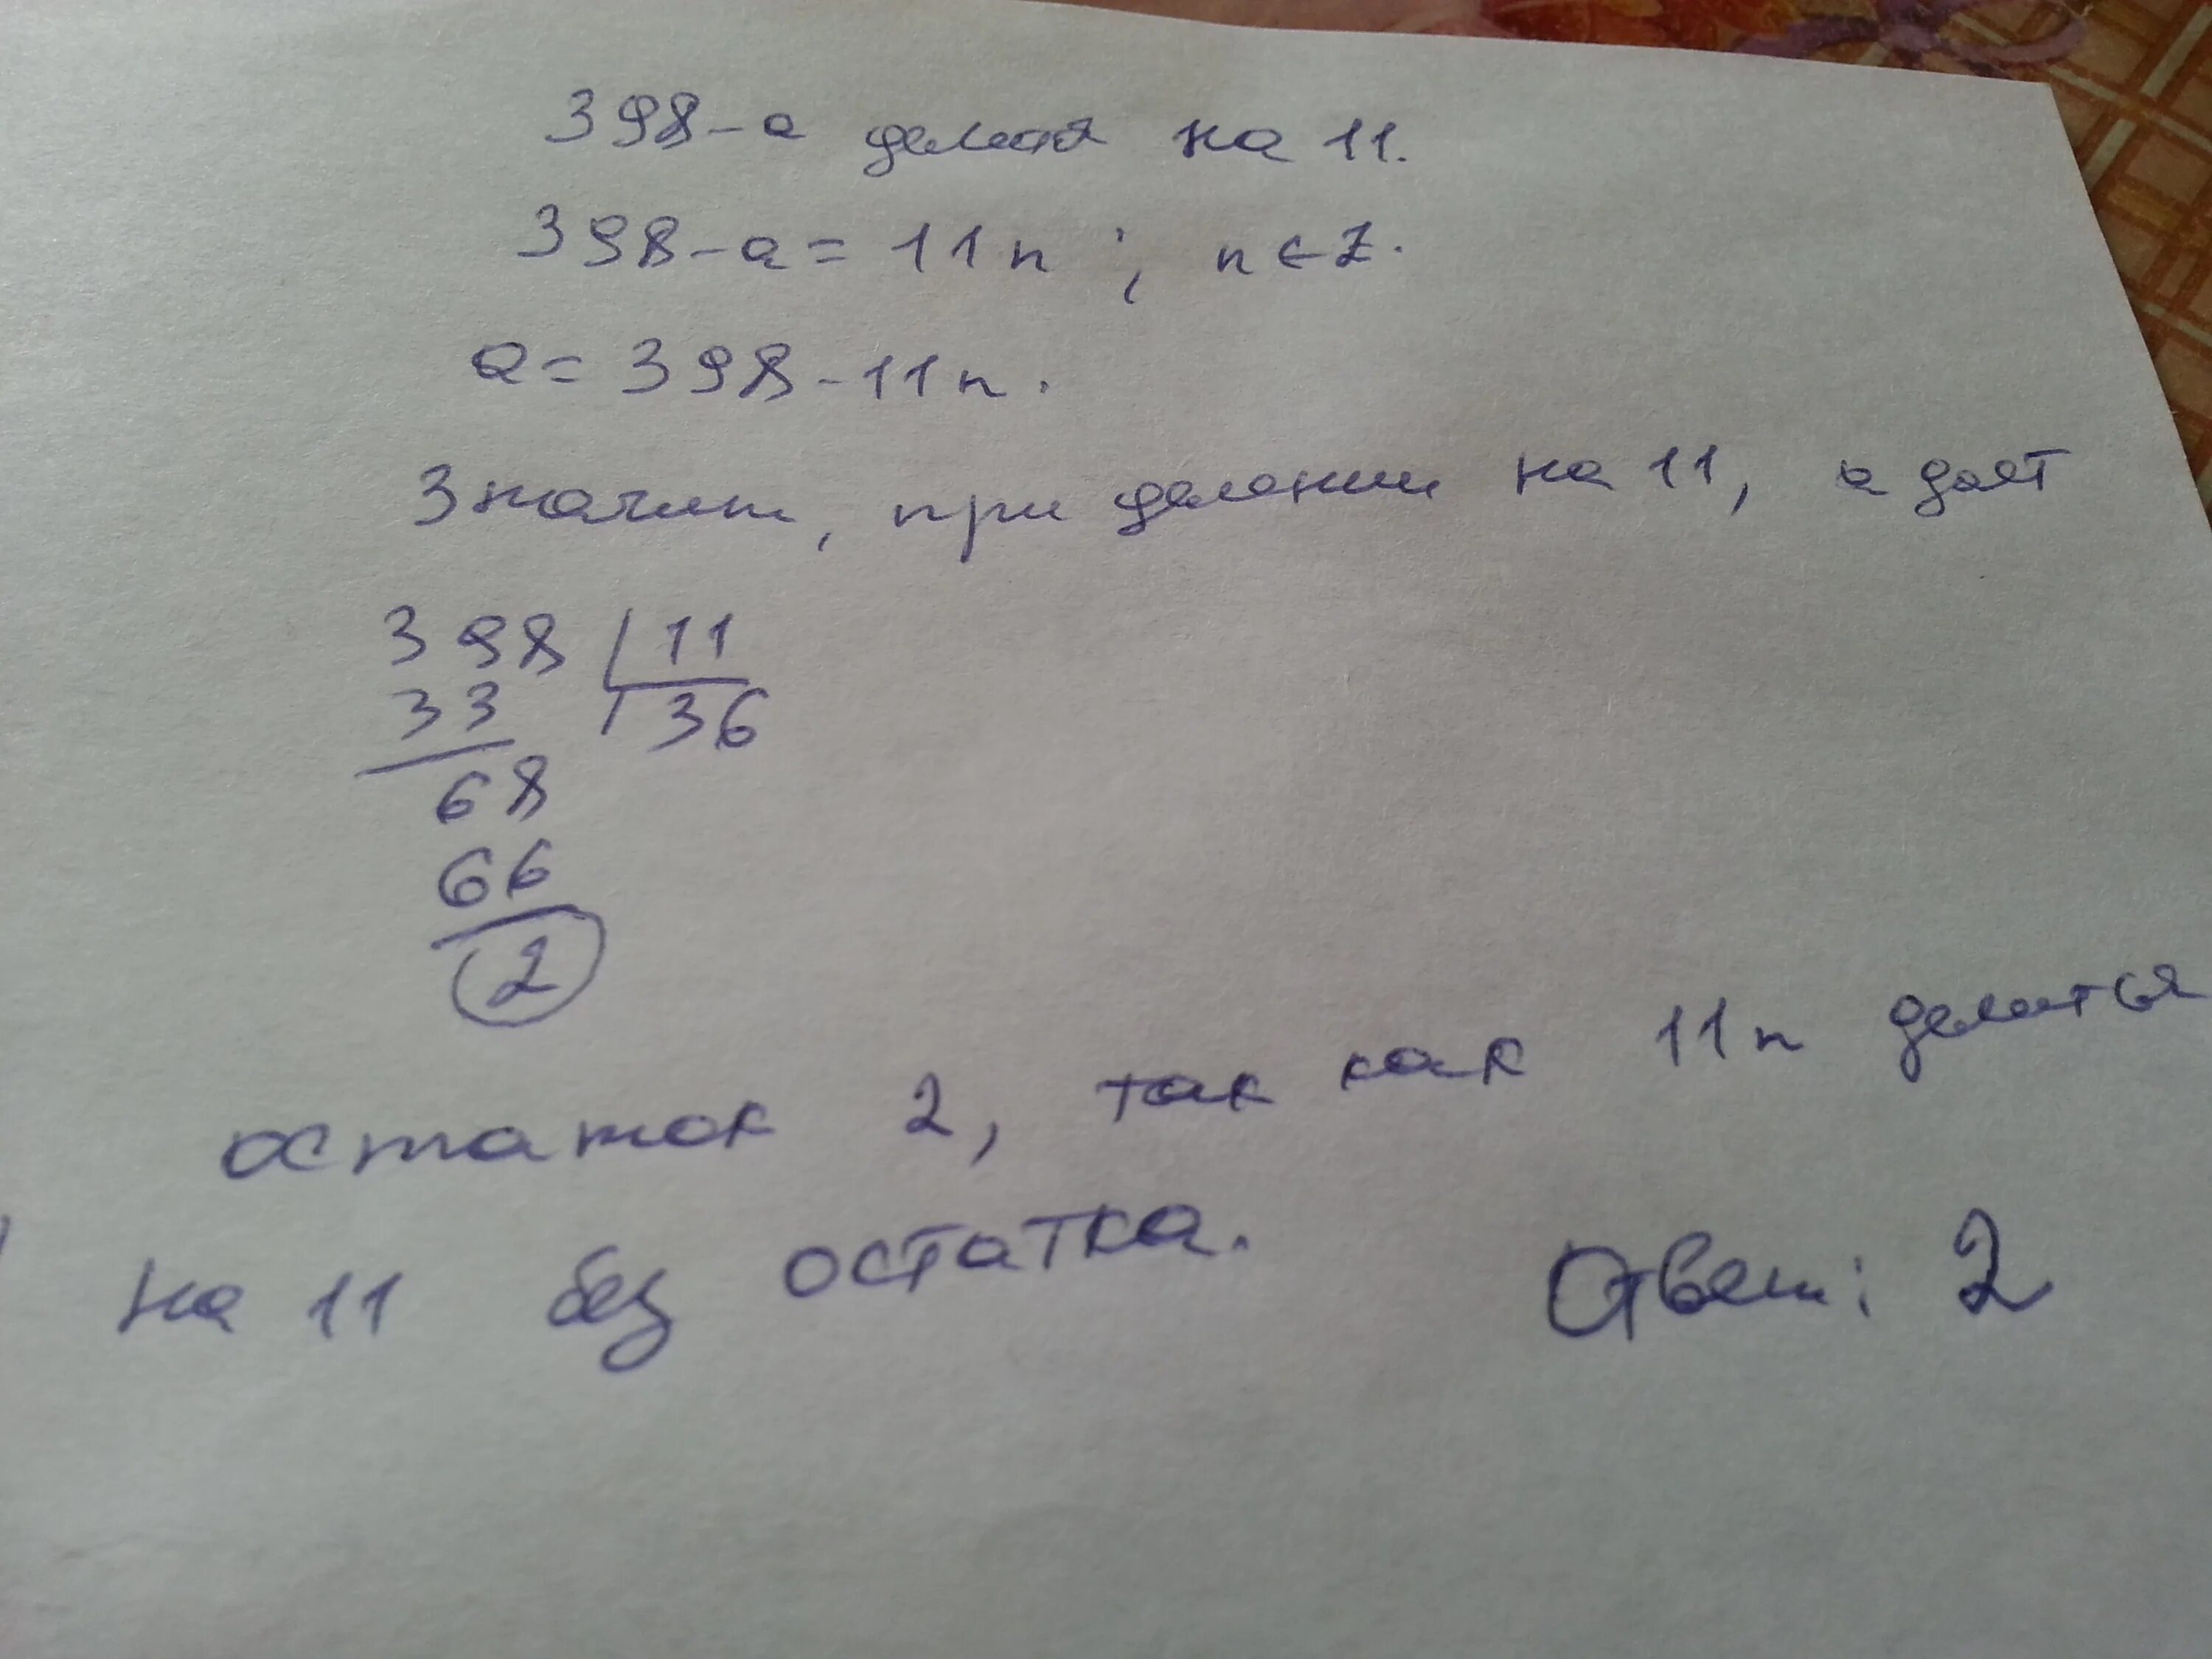 398-a делится на 11.
398-a = 11n ; n ∈ Z.
a = 398-11n.
Значит, при делении на 11, a даёт
398 11
33 36
68
66
2
остаток 2, так как 11n делится
на 11 без остатка. Ответ: 2